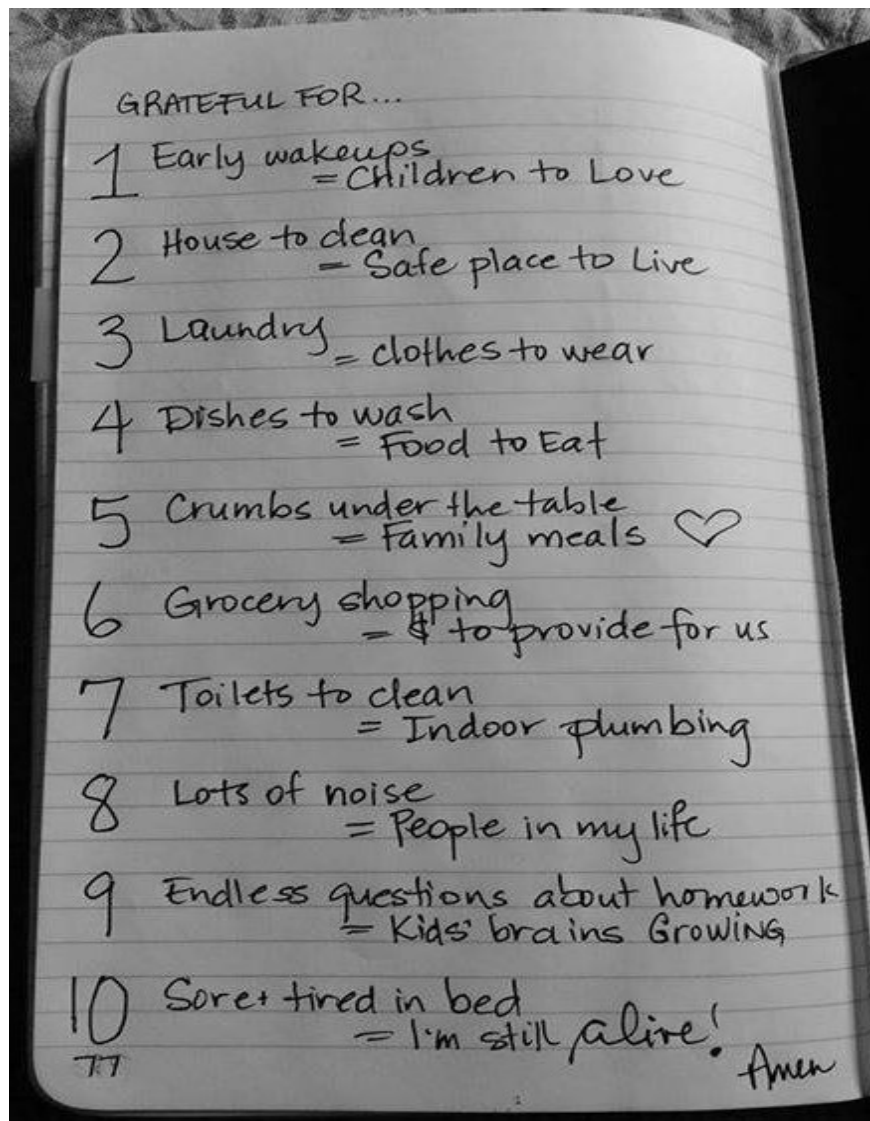 GRATEFUL FOR...
1 Early wakeups
= Children to Love
2 House to clean
= Safe place to Live
3 Laundry
= clothes to wear
4 Dishes to wash
= Food to Eat
5 Crumbs under the table
= Family meals ♡
6 Grocery shopping
= $ to provide for us
7 Toilets to clean
= Indoor plumbing
8 Lots of noise
= People in my life
9 Endless questions about homework
= Kids' brains GROWING
10 Sore + tired in bed
= I'm still alive!
Amen